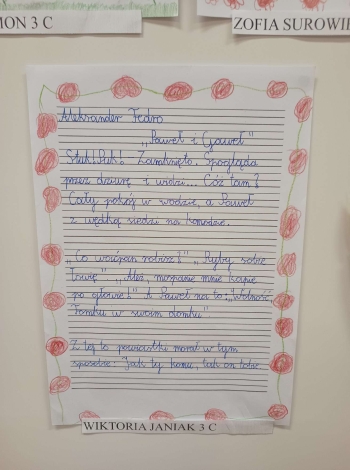 MON 3 C
ZOFIA SUROWIE
Aleksander Fedro
„Paweł i Gaweł"
Stuk! Puk! Zamknięto. Spogląda
przez dziurę i widzi... Cóż tam?
Cały pokój w wodzie, a Paweł
z wędką siedzi na komodzie.
„Co waćpan robisz?" „Ryby sobie
łowię." „Ależ, mospanie mnie kapie
po głowie!" A Paweł na to: „Wolność,
Tomku w swoim domku"
Z tej to powiastki morał w tym
sposobie: "Jak ty komu, tak on tobie
WIKTORIA JANIAK 3 C